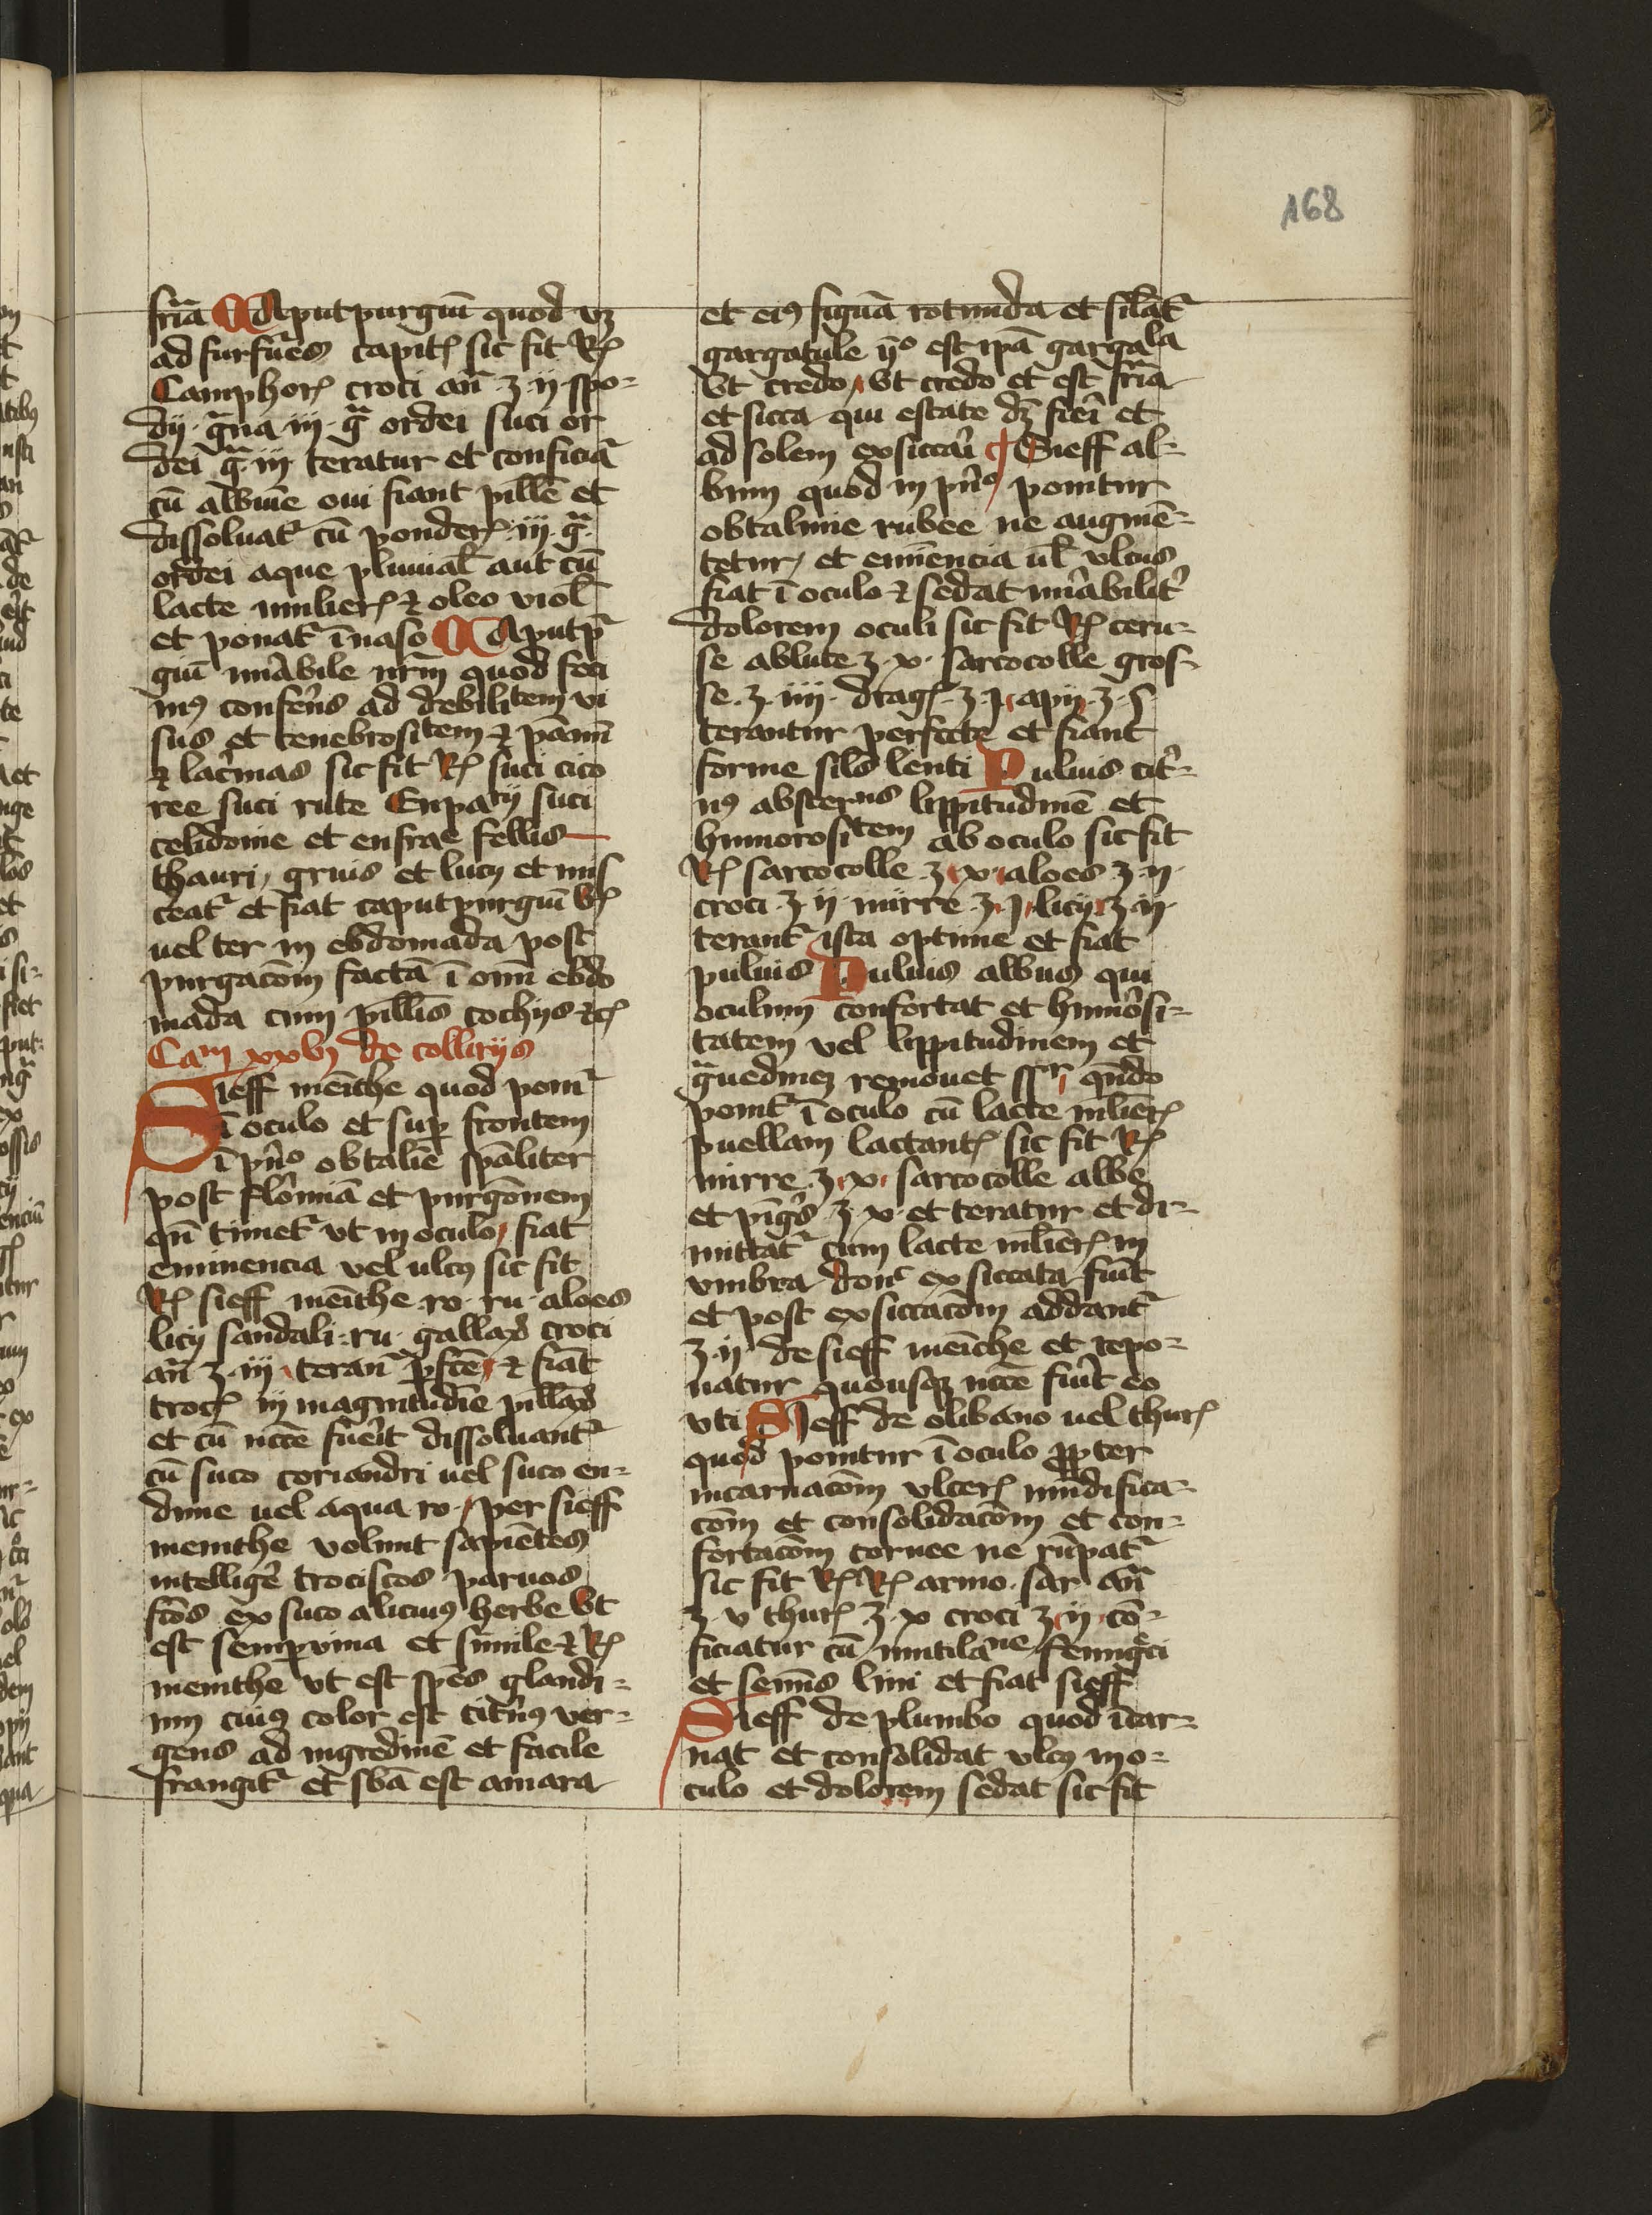 168
fria Caputpurgiū quod vꝫ
ad furfures capitꝭ sic fit Rꝭ
Camphorꝭ croti añ ʒ ii spo-
dij gͣna iij gͣ ordei suci or
dei gͣ iij teratur et conficiat᷑
cū albuīe oui fiant pille et
dissoluat᷑ cū ponderꝭ iij gͣ
ordei aque pluuial̄ aut cū
lacte mulierꝭ ⁊ oleo viol̄
et ponat᷑ ī naso Caputpͬ
giū mirabile nr̄m quod feci
mꝰ conferēs ad debilitem vi
sus et tenebrositem ⁊ pānū
⁊ lacrimas sic fit Rꝭ suci cico
ree suci rute Eupatij suci
celidonie et eufrae fellis
thauri gruis et lucij et mis
ceat᷑ et fiat caputpurgiū bꝭ
uel ter in ebdomada post
purgacōm factā ī om̄i ebdo
mada cum pillis cochijs ⁊cꝭ
Cam xxvj de collirijs
Sieff meīthe quod ponit᷑
ī oculo et suꝑ frontem
ī pͥnͦ obtalīe spāliter
post flōmiā et purgōnem
qñ timet᷑ vt in oculo fiat
eminencia vel ulcꝰ sic fit
Rꝭ sieff meīthe ro ru aloes
licij sandali ru gallaꝝ croci
añ ʒ iij teranͭ ꝑfcē ⁊ fiāt
trocꝭ in magnitudīe pillaꝝ
et cū nc̄ce fuerit dissoluant᷑
cū suco coriandri uel suco en-
diuie uel aqua ro per sieff
memithe volunt sapiētes
intelligere trociscos paruos
fcōs ex suco alicuiꝰ herbe vt
est semꝑuiua et simile ⁊ Rꝭ
memithe vt est spēs glandi-
um cuiꝰ color est citrinꝰ ver-
gens ad nigredinē et facile
frangit᷑ et sbā est amara
et eiꝰ figura rotunda et silat᷑
gargatule ijͦ est ipā gargala
vt credo vt credo et est fria
et sicca qui estate dꝫ fieri et
ad solem exsiccari Sieff al-
bum quod in pͥnͦ ponitur
obtalmie rubee ne augmē-
tetur et emīencia ul̄ vlcus
fiat ī oculo ⁊ sedat mirabilit᷑
dolorem oculi sic fit Rꝭ ceru-
se ablute ʒ x sarcocolle gros-
se ʒ iiij dragꝭ ʒ j apij ʒ s
terantur perfecte et fiant
forme sil̄es lenti Puluis citͥ-
nꝰ abstergens lippitudinē et
humorositem ab oculo sic fit
Rꝭ sarcocolle ʒ x aloes ʒ ii
croci ʒ ij mirre ʒ j licij ʒ ii
terant᷑ ista optime et fiat
puluis Puluis albus qui
oculum confortat et humorsi-
tatem vel lippitudinem et
gͣuedinez remouet sꝑ qn̄do
ponit᷑ ī oculo cū lacte mlierꝭ
puellam lactantꝭ sic fit Rꝭ
mirre ʒ x sarcocolle albe
et pīgͥs ʒ x et teratur et di-
mittat᷑ cum lacte mlierꝭ in
vmbra donͨ exsiccata fuīt
et post exsiccacōm addant᷑
ʒ ij de sieff meīthe et repo-
natur quousqꝫ nc̄ce fuīt eo
vti Sieff de olibano uel thurꝭ
quod ponitur ī oculo ꝓpter
incarnacōm vlcerꝭ mūdifica-
cōm et consolidacōm et con-
fortacōm cornee ne rūpat᷑
sic fit Rꝭ Rꝭ armo sar añ
ʒ v thurꝭ ʒ x croci ʒ ij cō-
ficiatur cū mutilaīne fenugͤci
et semīs lini et fiat sieff
Sieff de plumbo quod īcar-
nat et consolidat vlcꝰ in o-
culo et dolorem sedat sic fit